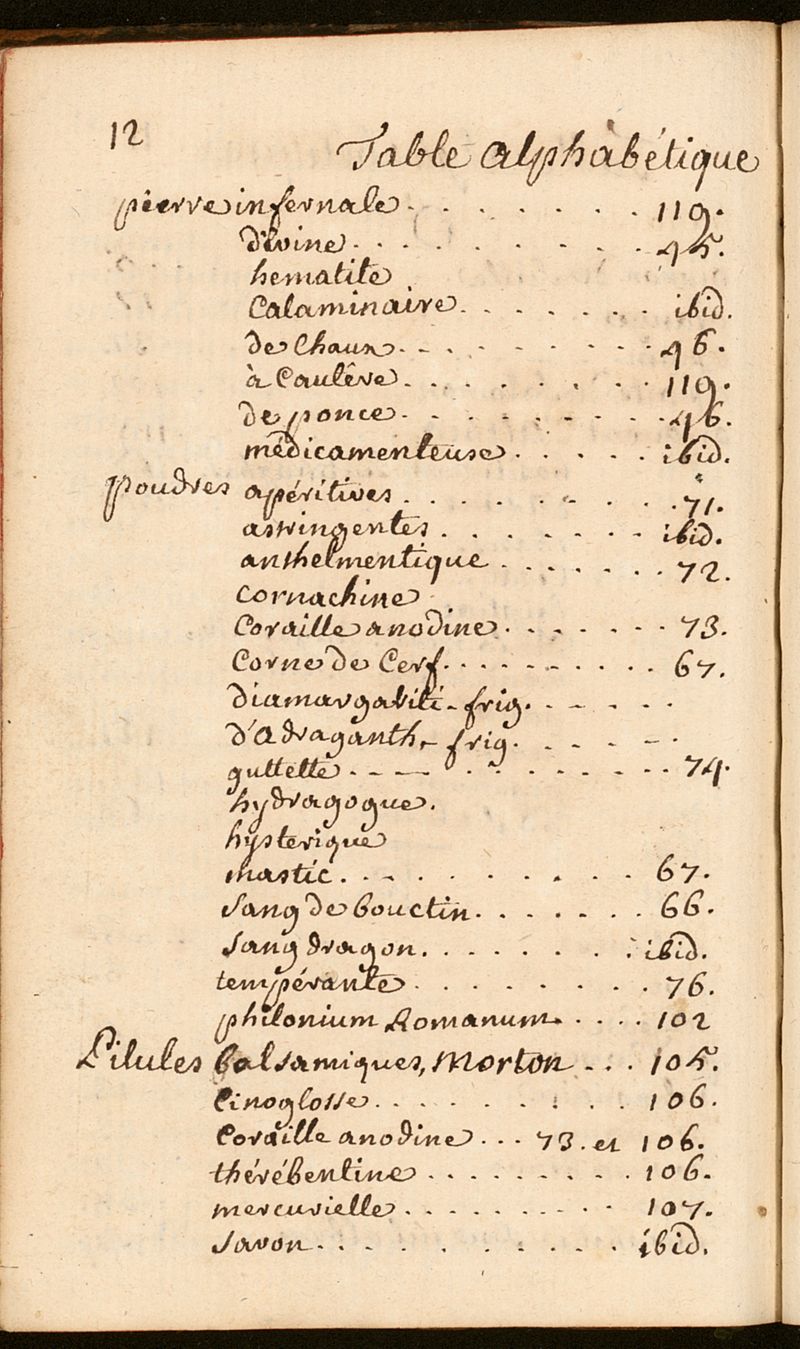 12
Table alphabétique
pierre infernale . . . . . . . 119.
divine . . . . . . . . . 45.
hematite
Calaminaire . . . . . . . ibid.
de Chaux . . . . . . . . 46.
à Caulêre . . . . . . . . 119.
de ponce . . . . . . . . 46.
médicamenteuse . . . . . ibid.
poudres apéritives . . . . . . . . 71.
astringentes . . . . . . . ibid.
anthelmentique . . . . . . . 72.
cornachine
Coraille anodine . . . . . . . 73.
Corne de Cerf . . . . . . . . . 67.
diamargariti - frig. . . . . .
d'Adraganth, frig. . . . . .
guttette . . . . . . . . . . 74.
hydragogue.
hysterique
mastic . . . . . . . . . . 67.
sang de bouctin . . . . . . . 66.
sang dragon . . . . . . . ibid.
tempérante . . . . . . . . 76.
philonium Romanum . . . . 102
Pilules balsamiques, Morton . . . 105.
Cinoglosse . . . . . . . . . 106.
Coraille anodine . . . 73. et 106.
thérébentine . . . . . . . . 106.
mercurielle . . . . . . . . . 107.
savon . . . . . . . . . . ibid.